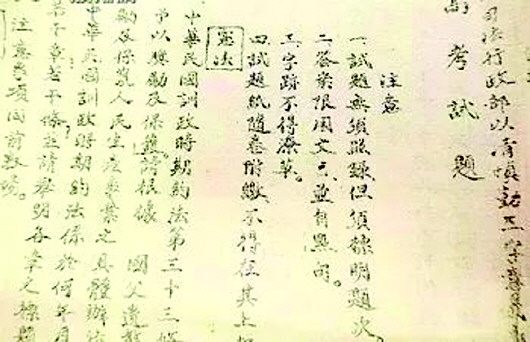 司法行政部以
考試題
注意
一試題無須謄錄但須標明題次。
二答案限用文言並自點句。
三字跡不得潦草。
四試題紙隨卷附繳不得在其上
憲法
中華民國訓政時期約法第三十三條
予以獎勵及保護請根據 國父遺教
勵及保護人民生產事業之具體辦法
中華民國訓政時期約法係於何年月
若干章若干條並請列明各章之標題
注意事項同前數場。